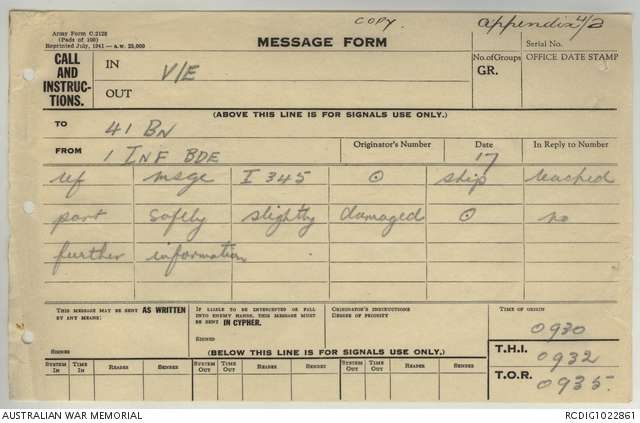 COPY appendix 4/2
Army Form C.2128
(Pads of 100)
Reprinted July, 1941—A.W. 25,000
MESSAGE FORM
Serial No.
CALL AND INSTRUC- TIONS.
IN V/E
OUT
No. of Groups
GR.
OFFICE DATE STAMP
(ABOVE THIS LINE IS FOR SIGNALS USE ONLY.)
TO 41 BN
FROM 1 INF BDE
Originator's Number
Date 17
In Reply to Number
ref msge I 345 ⊙ ship reached
port safely slightly damaged ⊙ no
further information
THIS MESSAGE MAY BE SENT AS WRITTEN BY ANY MEANS:
SIGNED
IF LIABLE TO BE INTERCEPTED OR FALL INTO ENEMY HANDS, THIS MESSAGE MUST BE SENT IN CYPHER.
SIGNED
ORIGINATOR'S INSTRUCTIONS
DEGREE OF PRIORITY
TIME OF ORIGIN
0930
(BELOW THIS LINE IS FOR SIGNALS USE ONLY.)
T.H.I. 0932
SYSTEM IN TIME IN READER SENDER SYSTEM OUT TIME OUT READER SENDER SYSTEM OUT TIME OUT READER SENDER
T.O.R. 0935.
AUSTRALIAN WAR MEMORIAL RCDIG1022861